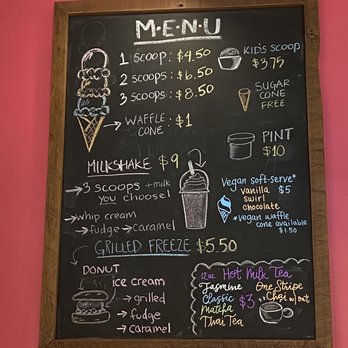 M·E·N·U
1 SCOOP: $4.50
2 SCOOPS: $6.50
3 SCOOPS: $8.50
WAFFLE CONE: → $1
KID'S SCOOP
$3.75
SUGAR
CONE
FREE
PINT
$10
MILKSHAKE $9
→ 3 SCOOPS + milk
YOU choose!
→ whip cream
→ fudge → caramel
Vegan soft-serve*
vanilla $5
swirl
chocolate
*vegan waffle
cone available
$1.50
GRILLED FREEZE $5.50
DONUT
ice cream
→ grilled
→ fudge
→ caramel
12oz Hot Milk Tea
Jasmine
Classic $3
Matcha
Thai Tea
One Stripe
Chai